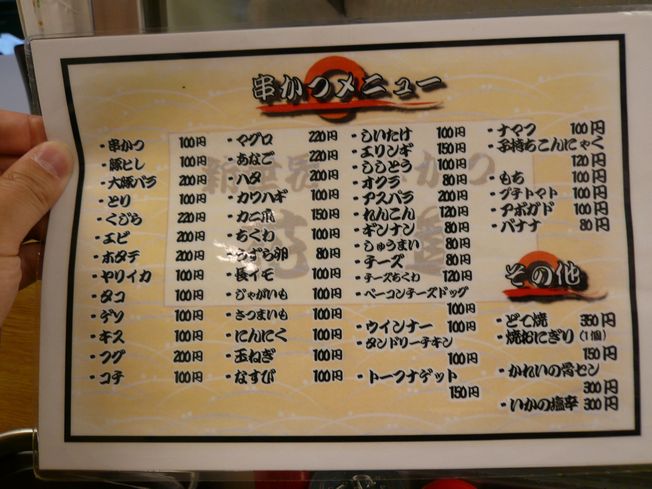 串かつメニュー
・串かつ 100円
・豚とし 100円
・大豚バラ 200円
・とり 100円
・くじら 220円
・エビ 200円
・ホタテ 200円
・ヤリイカ 100円
・タコ 100円
・ゲソ 100円
・キス 100円
・フグ 200円
・コチ 100円
・マグロ 220円
・あなご 220円
・ハタ 200円
・カワハギ 100円
・カニ爪 150円
・ちくわ 100円
・うずら卵 80円
・長イモ 100円
・じゃがいも 100円
・さつまいも 100円
・にんにく 100円
・玉ねぎ 100円
・なすび 100円
・しいたけ 100円
・エリンギ 150円
・ししとう 80円
・オクラ 80円
・アスパラ 200円
・れんこん 120円
・ギンナン 80円
・しゅうまい 80円
・チーズ 80円
・チーズちくわ 120円
・ベーコンチーズドッグ
100円
・ウインナー 100円
・タンドリーチキン
100円
・トーフナゲット
150円
・ナマフ 100円
・子持ちこんにゃく
120円
・もち 100円
・プチトマト 100円
・アボガド 100円
・バナナ 80円
その他
・どて焼 350円
・焼おにぎり(1個)
150円
・かれいの骨セン
300円
・いかの塩辛 300円